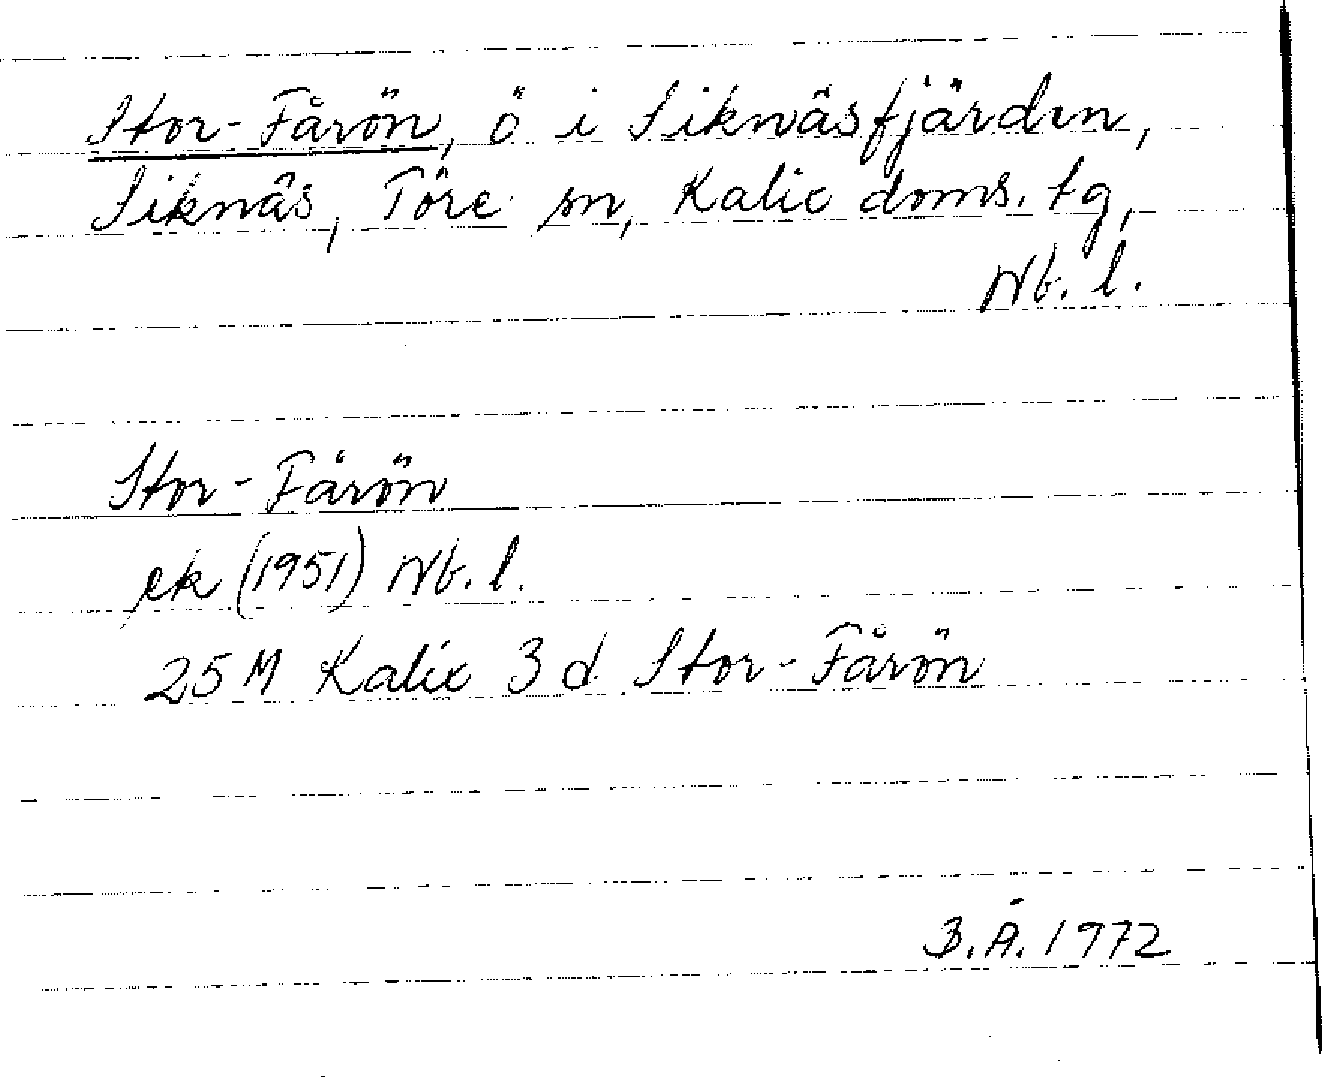 Stor-Fårön, ö i Siknäsfjärden,
Siknäs, Töre sn, Kalix doms. tg,
Nb. l.
Stor-Fårön
ek (1951) Nb. l.
25 M Kalix 3 d Stor-Fårön
B.Å. 1972